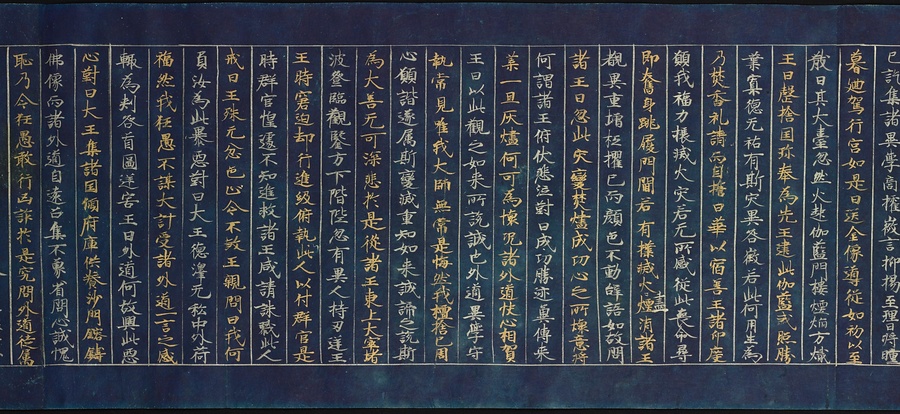 已訖集諸異學商搉微言抑揚至理日將曛
暮迴駕行宮如是日送金像導從如初以至
散日其大臺忽然火起伽藍門樓煙焰方熾
王曰罄捨国珎奉為先王建此伽藍式照勝
業寡德无祐有斯灾異咎徵若此何用生為
乃焚香礼請而自擔曰華以宿善王諸印度
願我福力攘滅火灾若无所感従此喪命尋
即奮身跳履門閫若有撲滅火盡煙消諸王
覩異重增祗懼已而顏色不動辞語如故問
諸王曰忽此灾變焚燼成功心之所懐意將
何謂諸王俯伏悲泣對曰成功勝迹冀傳来
葉一旦灰燼何可為懐况諸外道快心相賀
王曰以此觀之如来所説誠也外道異學守
執常見唯我大師無常是悔然我檀捨已周
心願諧遂属斯變滅重知如来誠諦之説斯
為大善无可深悲於是從諸王東上大窣堵
波登臨觀覽方下階陛忽有異人持刃逆王
王時窘迫却行進級俯執此人以付群官是
時群官惶遽不知進救諸王咸請誅戮此人
戒日王殊无忿色止令不致王親問曰我何
負汝為此暴惡對曰大王德澤无私中外荷
福然我狂愚不謀大計受諸外道一言之惑
輙為刾客首圖逆害王曰外道何故興此惡
心對曰大王集諸国傾府庫供養沙門鎔鑄
佛像而諸外道自遠召集不蒙省問心誠愧
恥乃令狂愚敢行凶詐於是究問外道徒属